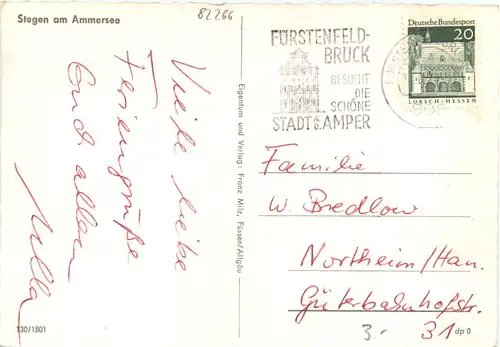 Stegen am Ammersee
82266
Viele liebe
Feriengrüße
Euch allen
130/1801
Eigentum und Verlag: Franz Milz, Füssen/Allgäu
FÜRSTENFELD-
BRUCK
BESUCHT
DIE
SCHÖNE
STADT a. AMPER
Deutsche Bundespost
20
LORSCH/HESSEN
Familie
W. Bredlow
Northeim/Han.
Güterbahnhofstr.
31
3.-
dp 0